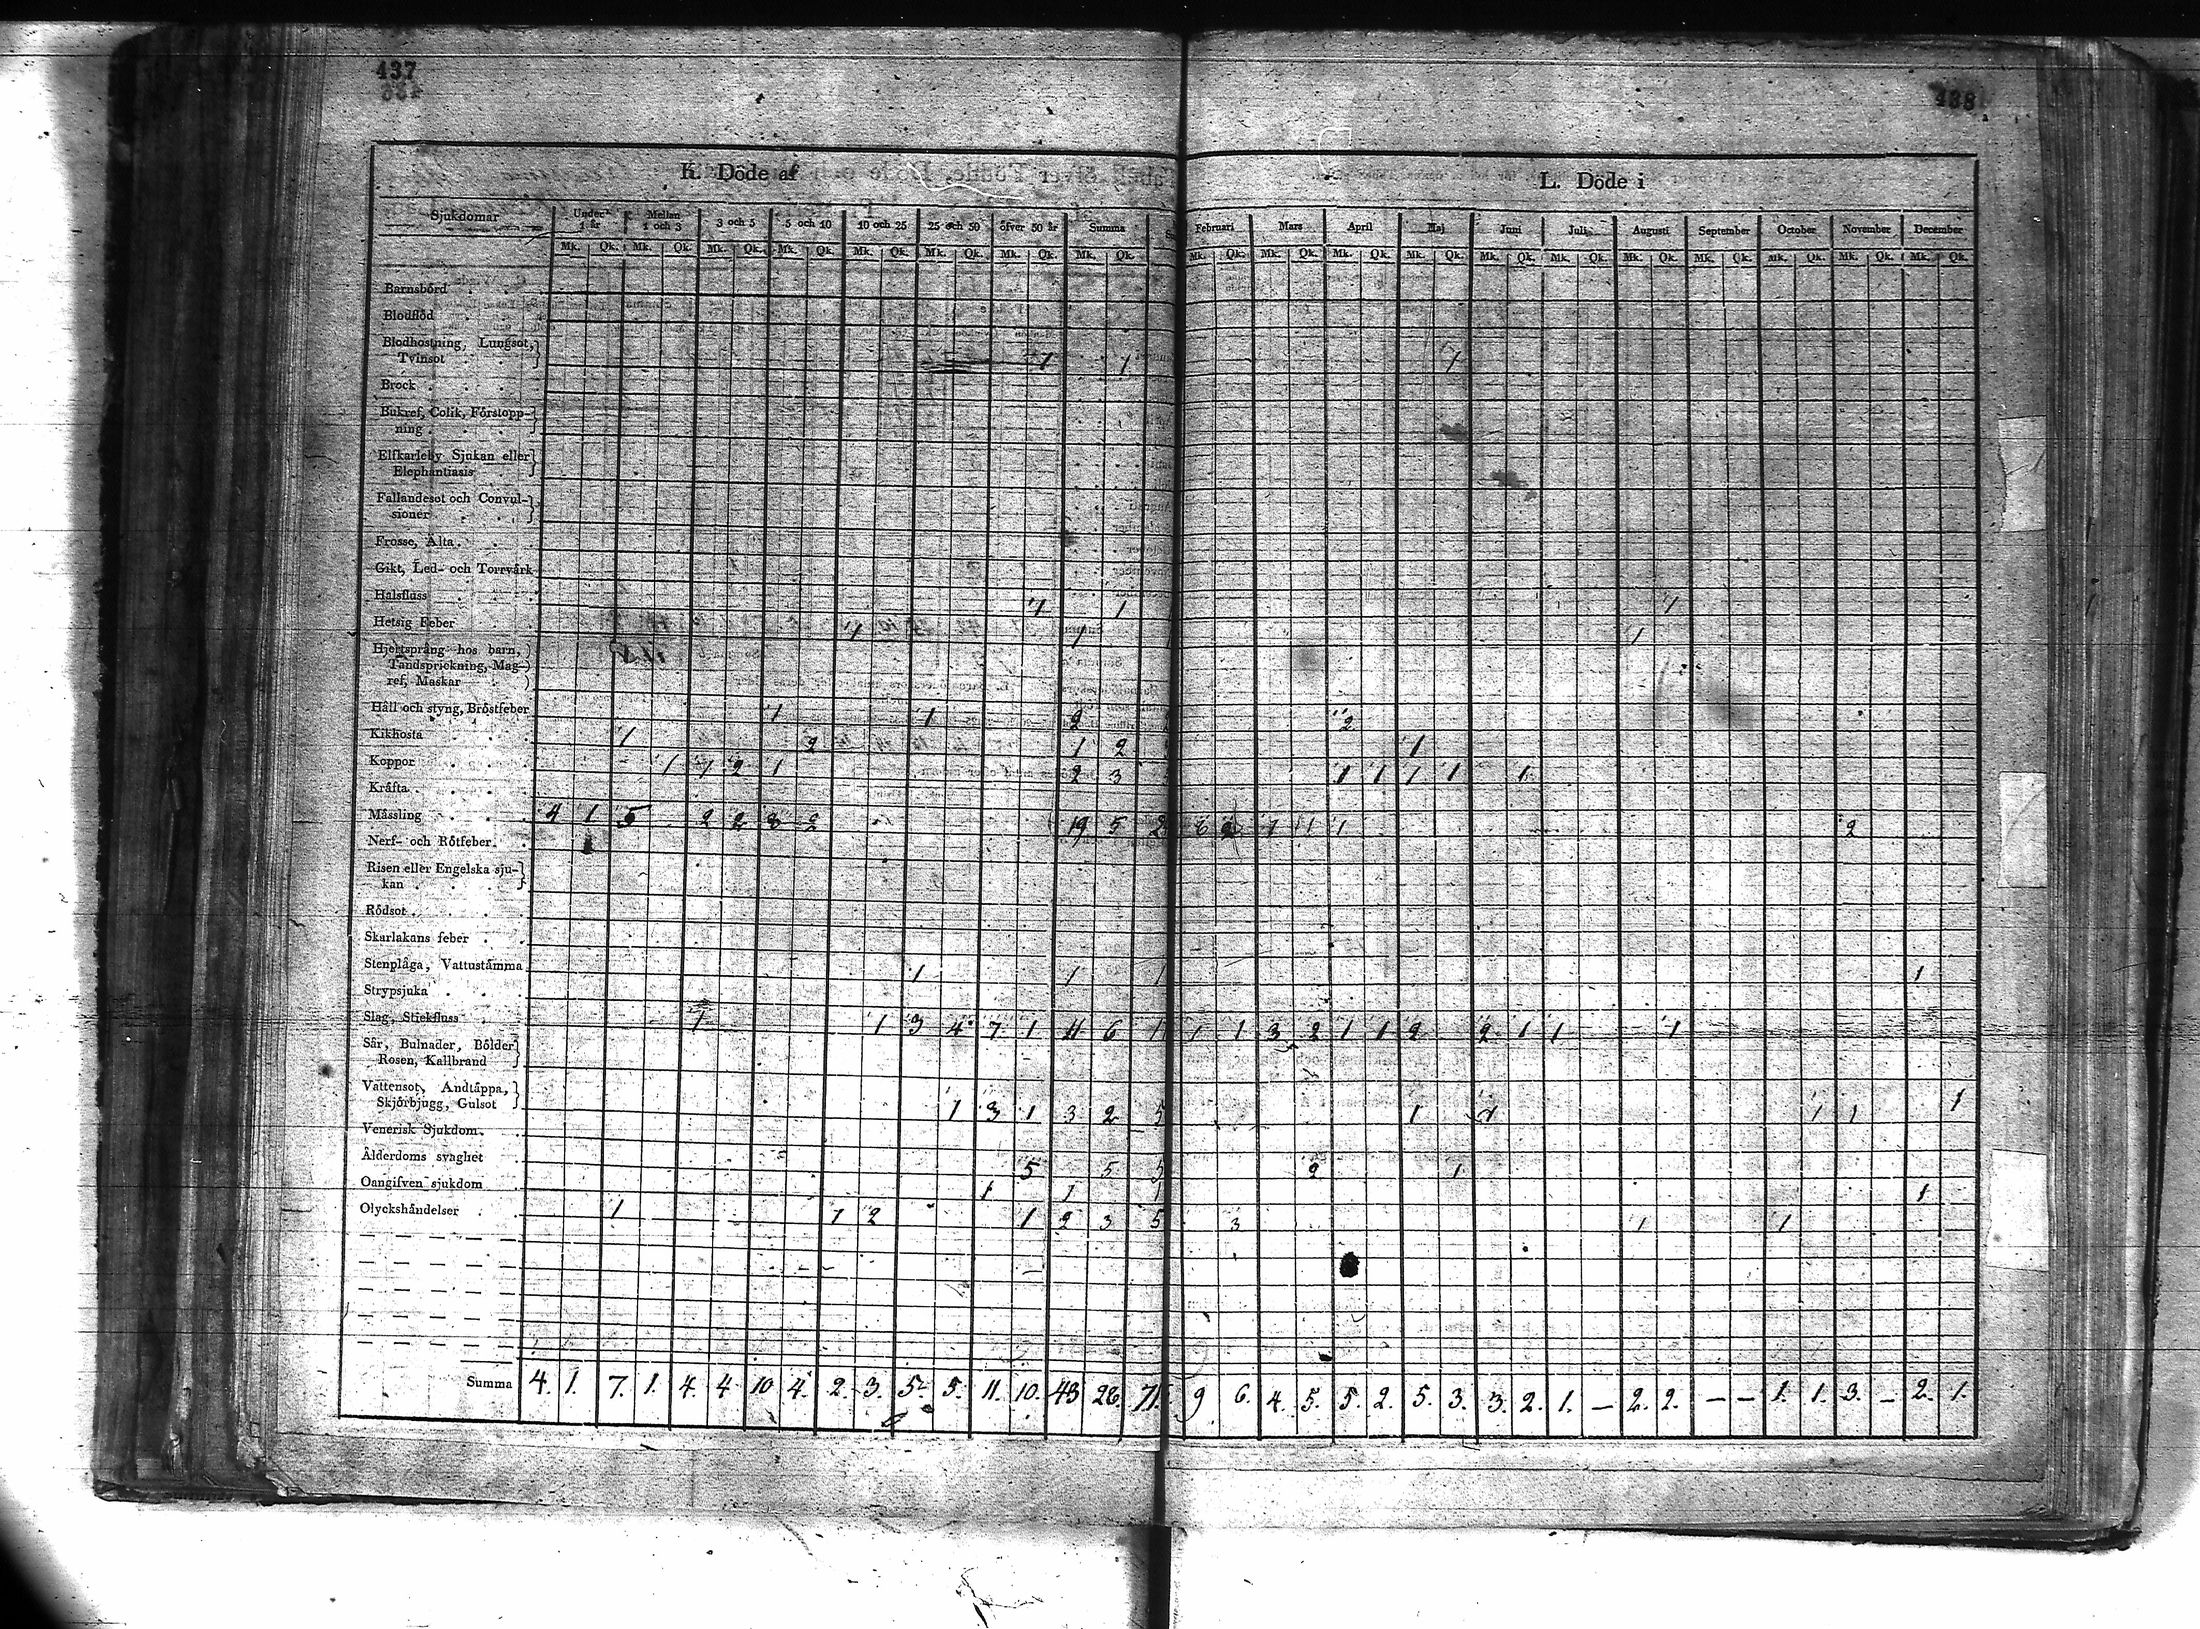 437
438
K. Döde af
L. Döde i
Sjukdomar Under 1 år Mellan 1 och 3 3 och 5 5 och 10 10 och 25 25 och 50 öfver 50 år Summa Februari Mars April Maj Juni Juli Augusti September October November December
Mk. Qk. Mk. Qk. Mk. Qk. Mk. Qk. Mk. Qk. Mk. Qk. Mk. Qk. Mk. Qk. Mk. Qk. Mk. Qk. Mk. Qk. Mk. Qk. Mk. Qk. Mk. Qk. Mk. Qk. Mk. Qk. Mk. Qk. Mk. Qk. Mk. Qk.
Barnsbörd
Blodflöd
Blodhostning, Lungsot,
Tvinsot 1 1 1
Brock
Bukref, Colik, Förstopp-
ning
Elfkarleby Sjukan eller
Elephantiasis
Fallandesot och Convul-
sioner
Frosse, Älta
Gikt, Led- och Torrvärk
Halsfluss 1 1 1
Hetsig Feber 1 1 1
Hjertsprång hos barn,
Tandsprickning, Mag-
ref, Maskar
Håll och styng, Bröstfeber 1 1 2 2
Kikhosta 1 2 1 2 1
Koppor 1 1 2 1 2 3 1 1 1 1 1
Kräfta
Mässling 4 1 5 2 2 8 2 19 5 2 8 2 1 1 1 2
Nerf- och Rötfeber
Risen eller Engelska sju-
kan
Rödsot
Skarlakans feber
Stenplåga, Vattustämma 1 1 1 1
Strypsjuka
Slag, Stickfluss 1 1 3 4 7 1 11 6 1 1 1 3 2 1 1 2 2 1 1 1
Sår, Bulnader, Bölder
Rosen, Kallbrand
Vattensot, Andtäppa,
Skjörbjugg, Gulsot 1 3 1 3 2 5 1 1 1 1 1
Venerisk Sjukdom
Ålderdoms svaghet 5 5 5 2 1
Oangifven sjukdom 1 1 1 1
Olyckshändelser 1 1 2 1 2 3 5 3 1 1
Summa 4. 1. 7. 1. 4. 4 10 4. 2. 3. 5. 5. 11. 10. 43 28. 71. 9 6. 4. 5. 5. 2. 5. 3. 3. 2. 1. – 2. 2. – – 1. 1. 3. – 2. 1.